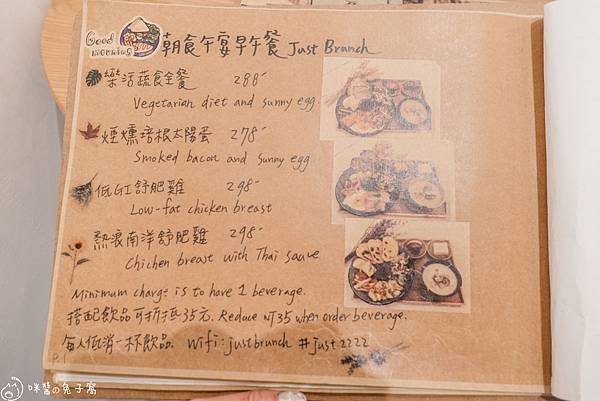 Good morning 朝食午宴早午餐 Just Brunch
樂活蔬食全餐 288-
Vegetarian diet and sunny egg.
煙燻培根太陽蛋 278-
Smoked bacon and sunny egg
低GI舒肥雞 298-
Low-fat chicken breast
熱浪南洋舒肥雞 298-
Chichen breast with Thai sauce
Minimum charge is to have 1 beverage.
搭配飲品可折抵35元. Reduce NT35 when order beverage.
每人低消一杯飲品. Wifi:justbrunch #just2222
P.1
咪醬の兔子窩